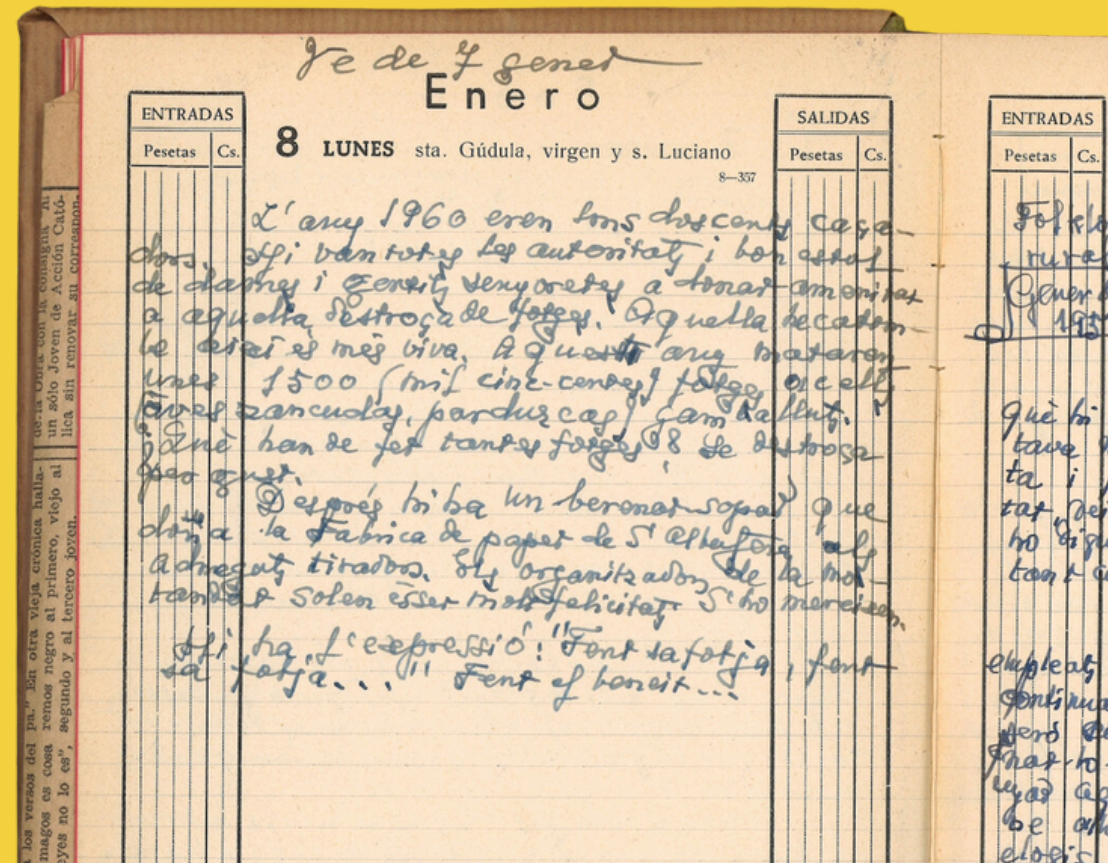 Ve de 7 gener
Enero
ENTRADAS
Pesetas Cs.
8 LUNES sta. Gúdula, virgen y s. Luciano
8—357
SALIDAS
Pesetas Cs.
L'any 1960 eren tons doscents caça-
dors. Hi van totes les autoritats i bon estol
de dames i gentils senyoretes a donar amenitat
a aquella destroça de fotges. Aquella hecatom-
be així és més viva. Aquest any mataren
unes 1500 (mil cinc-centes) fotges ocells
(aves zancudas, parduzcas) camallluts.
¿Què han de fer tantes fotges? Se destroça
per gust.
Després hi ha un berenar-sopar que
dona la Fabrica de paper de S'Albufera als
adregats tiradors. Els organitzadors de la ma-
tança solen ésser molt felicitats. S'ho mereixen.
Hi ha l'expressió: "Fent sa fotja, fent
sa fotja..." Fent el beneit...
de la Obra con la consigna
un sólo Joven de Acción Cató-
lica sin renovar su correspon-
a los versos del pa." En otra vieja crónica halla-
magos es cosa remos negro al primero, viejo al
eyes no lo es", segundo y al tercero joven.
ENTRADAS
Pesetas Cs.
Gener
què hi
tava
ta i
tar
ho
tant
empleats
continua
serà
be
elogis